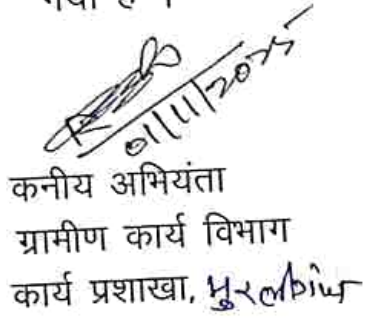 01/11/2025
कनीय अभियंता
ग्रामीण कार्य विभाग
कार्य प्रशाखा,